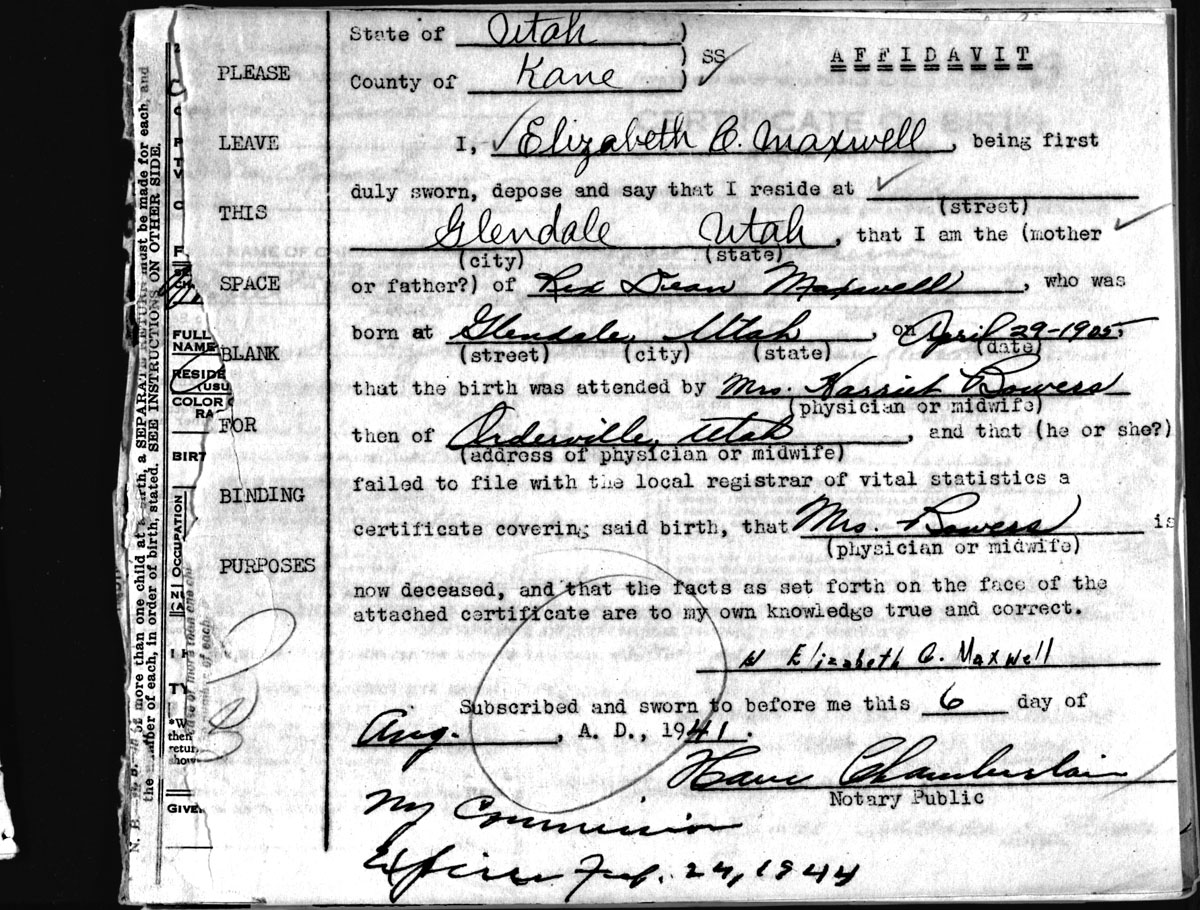 State of Utah )
) SS
County of Kane )
AFFIDAVIT
PLEASE
LEAVE
THIS
SPACE
BLANK
FOR
BINDING
PURPOSES
I, Elizabeth C. Maxwell, being first
duly sworn, depose and say that I reside at
(street)
Glendale Utah, that I am the (mother
(city) (state)
or father?) of Rex Dean Maxwell, who was
born at Glendale, Utah, on April 29-1905,
(street) (city) (state) (date)
that the birth was attended by Mrs. Harriet Bowers
(physician or midwife)
then of Orderville, Utah, and that (he or she?)
(address of physician or midwife)
failed to file with the local registrar of vital statistics a
certificate covering said birth, that Mrs. Bowers is
(physician or midwife)
now deceased, and that the facts as set forth on the face of the
attached certificate are to my own knowledge true and correct.
Elizabeth C. Maxwell
Subscribed and sworn to before me this 6 day of
Aug., A. D., 1941.
Chamberlain
Notary Public
My Commission
Expires Feb. 24, 1944
more than one child at a birth, a SEPARATE RETURN must be made for each, and
the number of each, in order of birth, stated. SEE INSTRUCTIONS ON OTHER SIDE.
FULL
NAME
RESIDE
(USU
COLOR
RA
BIRT
OCCUPATION
TY
*W
then
retur
show
GIVE